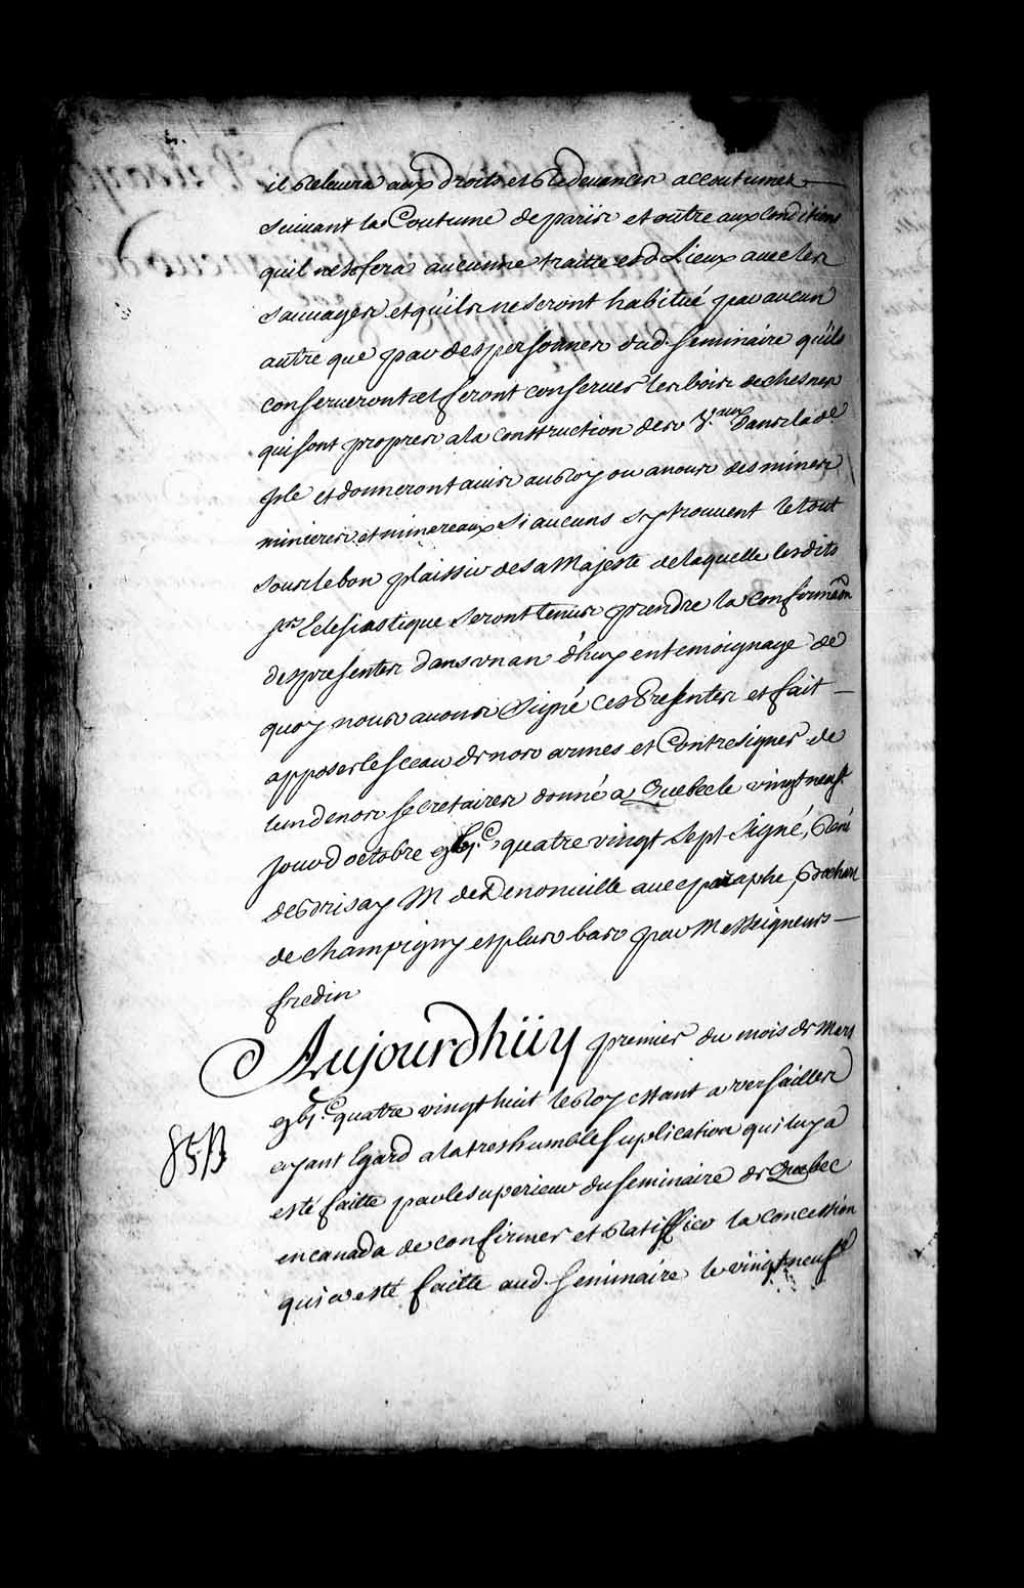 il Relevera aux droits et Redevances accoutumez
suivant la Coutume de paris et outre aux Conditions
quil ne se fera aucunne traitte esd. Lieux avec les
sauvages et quils ne seront habitué par aucun
autre que par des personnes dud. Seminaire quils
conserveront et feront conserver les bois de chesnes
qui sont propres a la Construction des V.aux dans lad.e
Isle et donneront avis au Roy ou a nous des mines
minieres et minereaux si aucuns sy trouvent le tout
sous le bon plaissir de sa Majesté de laquelle lesdits
Srs Eclesiastique seront tenus prendre la confirmaon
des presentes dans un an d'huy en temoignage de
quoy nous avons Signé ces Presentes et fait
apposer le sceau de nos armes et Contresigner de
lun de nos secretaires donné a Quebec le vingt neufe
jour d octobre gbj.C quatre vingt sept Signé, René
de Brisay M de Denonville avec paraphe, Bochart
de Champigny et plus bas par Messeigneurs
fredin
Aujourdhüy premier du mois de Mars
gbj.C quatre vingt huit le Roy estant a versailles
ayant Egard a la tres humble suplication qui luy a
esté faitte par le superieur du seminaire de Quebec
en canada de confirmer et Ratiffier la concession
85B
qui a esté faitte aud. Seminaire le vingt neufe